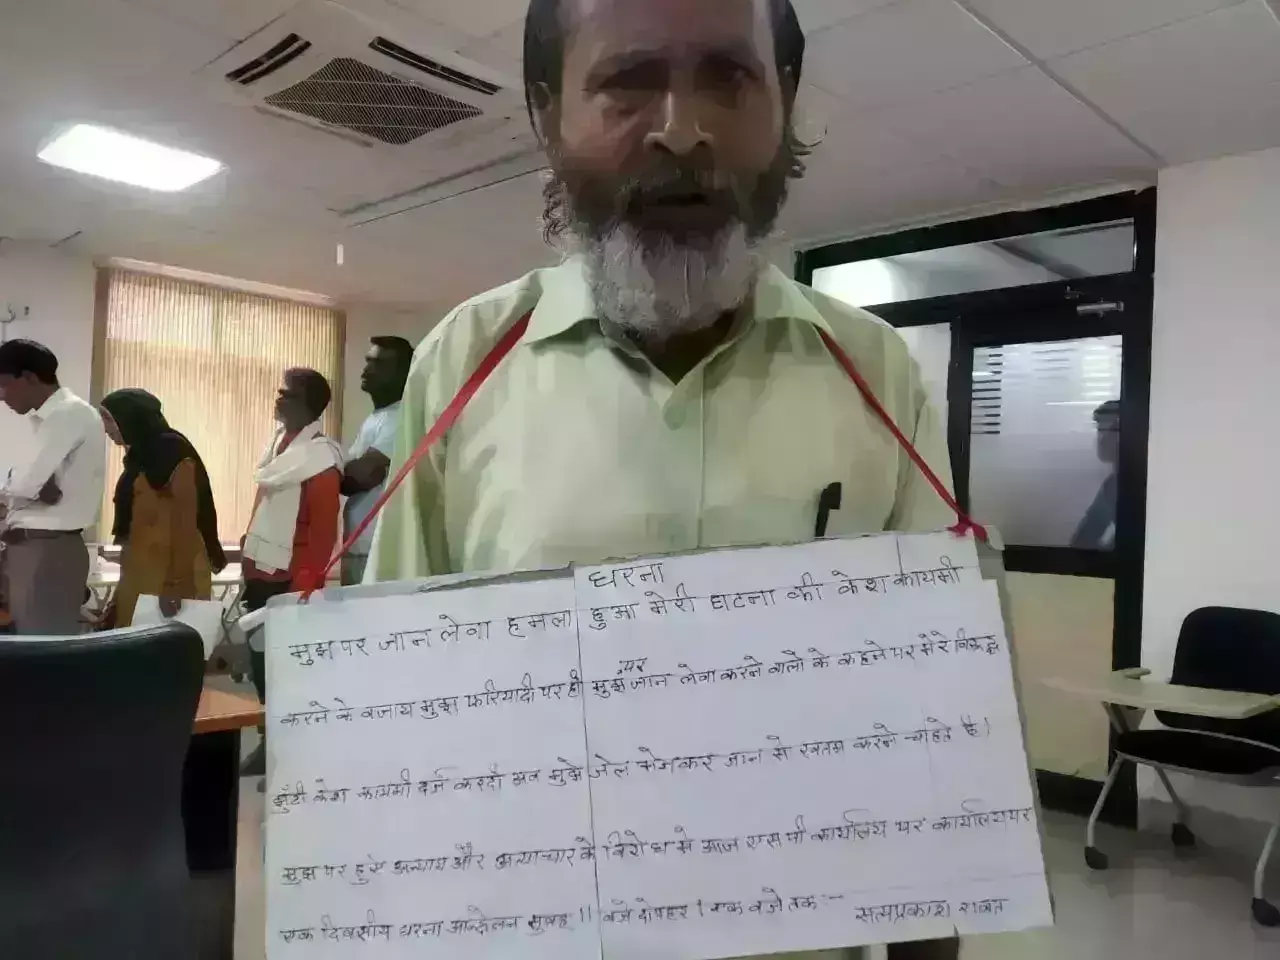 धरना
मुझ पर जान लेवा हमला हुआ मेरी घटना की केश कायमी
करने के वजाय मुझ फरियादी पर ही मुझ पर जान लेवा करने वालो के कहने पर मेरे विरूद्ध
झुंठी केश कायमी दर्ज करदी अब मुझे जेल भेजकर जान से खतम करने चाहते है।
मुझ पर हुऐ अन्याय और अत्याचार के विरोध मे आज एस पी कार्यालय पर कार्यालय पर
एक दिवसीय धरना आन्दोलन सुवह 11 वजे दोपहर 1 एक वजे तक :-
सत्यप्रकाश रावत